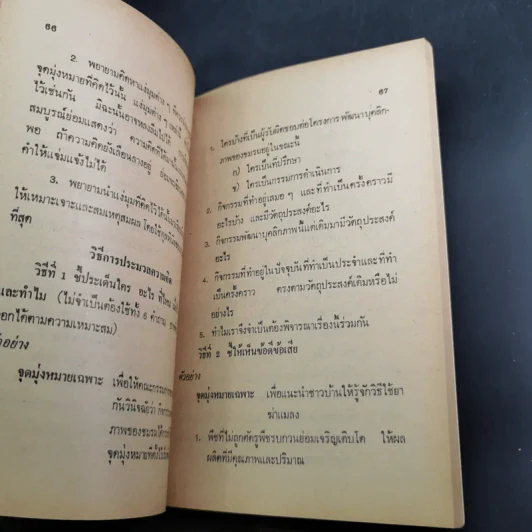 66
2. พยายามคิดหาแง่มุมต่าง ๆ
จุดมุ่งหมายที่คิดไว้นั้น แง่มุมต่าง ๆ
ไว้เช่นกัน มิฉะนั้นอาจหลงลืมไปได้
สมบูรณ์ย่อมแสดงว่า
พอ ถ้าความคิดยังเลือนลางอยู่
คำให้แจ่มแจ้งไม่ได้
3. พยายามนำแง่มุมที่คิดไว้ได้
ให้เหมาะเจาะและสมเหตุสมผล
ที่สุด
วิธีการประมวลความคิด
วิธีที่ 1 ชี้ประเด็นใคร อะไร ที่ไหน
และทำไม (ไม่จำเป็นต้องใช้ทั้ง 6 คำถาม
ออกได้ตามความเหมาะสม)
จุดมุ่งหมายเฉพาะ เพื่อให้คณะกรรมการ
กันวินิจฉัยว่า
ภาพของชมรมได้
67
1. ใครบ้างที่เป็นผู้รับผิดชอบต่อโครงการพัฒนาบุคลิก-
ภาพของชมรมอยู่ในขณะนี้
ก) ใครเป็นที่ปรึกษา
ข) ใครเป็นกรรมการดำเนินการ
2. กิจกรรมที่ทำอยู่เสมอ ๆ และที่ทำเป็นครั้งคราวมี
อะไรบ้าง และมีวัตถุประสงค์อะไร
3. กิจกรรมพัฒนาบุคลิกภาพนี้แต่เดิมมามีวัตถุประสงค์
อะไร
4. กิจกรรมที่ทำอยู่ในปัจจุบันที่ทำเป็นประจำและที่ทำ
เป็นครั้งคราว ตรงตามวัตถุประสงค์เดิมหรือไม่
อย่างไร
5. ทำไมเราจึงจำเป็นต้องพิจารณาเรื่องนี้ร่วมกัน
วิธีที่ 2 ชี้ให้เห็นข้อดีข้อเสีย
ตัวอย่าง
จุดมุ่งหมายเฉพาะ เพื่อแนะนำชาวบ้านให้รู้จักวิธีใช้ยา
ฆ่าแมลง
1. พืชที่ไม่ถูกศัตรูพืชรบกวนย่อมเจริญเติบโต ให้ผล
ผลิตที่มีคุณภาพและปริมาณ